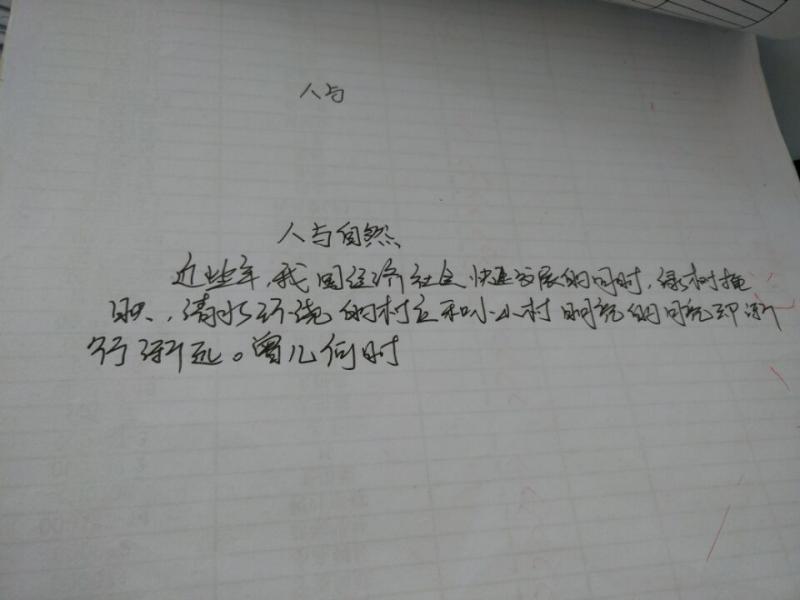 人与
人与自然
近些年,我国经济社会快速发展的同时,绿树掩
映、清水环绕的村庄和小山村
行渐远。曾几何时